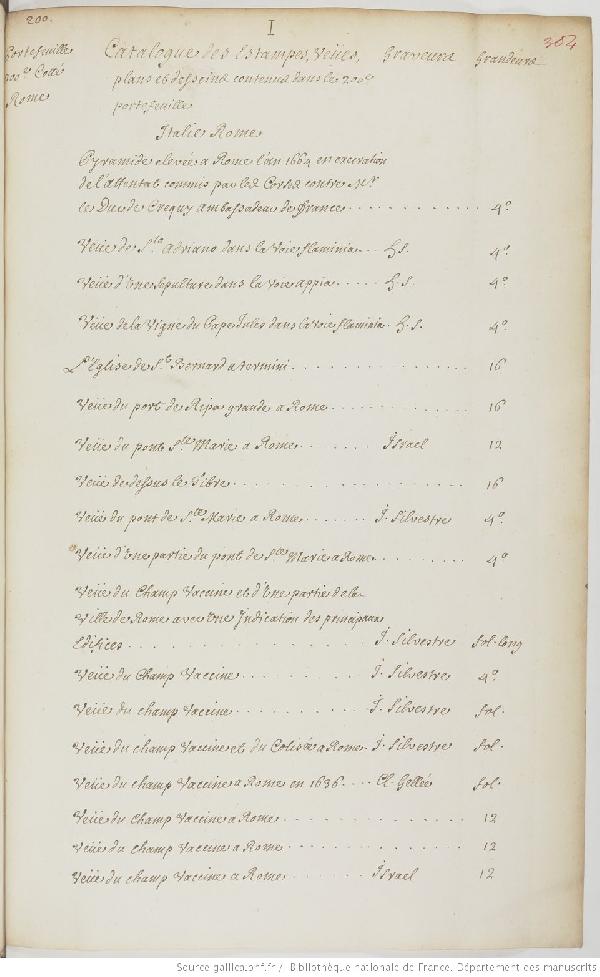 200.
I
304
Portefeuille
200e Cotté
Rome
Catalogue des Estampes, Veües, Graveurs Grandeurs
plans et desseins contenus dans le 200e
portefeuille
Italie Rome
Pyramide elevée a Rome l'an 1664 en execration
de l'attentat commis par les Corses contre Mr
le Duc de Crequy ambassadeur de France . . . . . . . . . . 4º
Veüe de St Adriano dans la Voie flaminia . . H. S. 4º
Veüe d'Une Sepulture dans la Voie appia . . . . H. S. 4º
Veüe de la Vigne du Pape Jules dans la Voie flaminia . H. S. 4º
L'Eglise de St Bernard a termini . . . . . . . . . . . . 16
Veüe du port de Ripa grande a Rome . . . . . . . . . . 16
Veüe du pont Ste Marie a Rome . . . . . . . Israel 12
Veüe de dessus le Tibre . . . . . . . . . . . . . . . 16
Veüe du pont de Ste Marie a Rome . . . . . . I. Silvestre 4º
Veüe d'Une partie du pont de Ste Marie a Rome . . . . . . . 4º
Veüe du Champ Vaccine et d'Une partie de la
Ville de Rome avec Une Indication des principaux
Edifices . . . . . . . . . . . . . . I. Silvestre fol. long
Veüe du Champ Vaccine . . . . . . . . . I. Silvestre 4º
Veüe du champ Vaccine . . . . . . . . . I. Silvestre fol.
Veüe du champ Vaccine et du Colisée a Rome . I. Silvestre fol.
Veüe du champ Vaccine a Rome en 1636 . . . . Cl. Gellée fol.
Veüe du champ Vaccine a Rome . . . . . . . . . . . . 12
Veüe du champ Vaccine a Rome . . . . . . . . . . . . 12
Veüe du champ Vaccine a Rome . . . . . . . Israel 12
Source gallica.bnf.fr / Bibliothèque nationale de France. Département des manuscrits